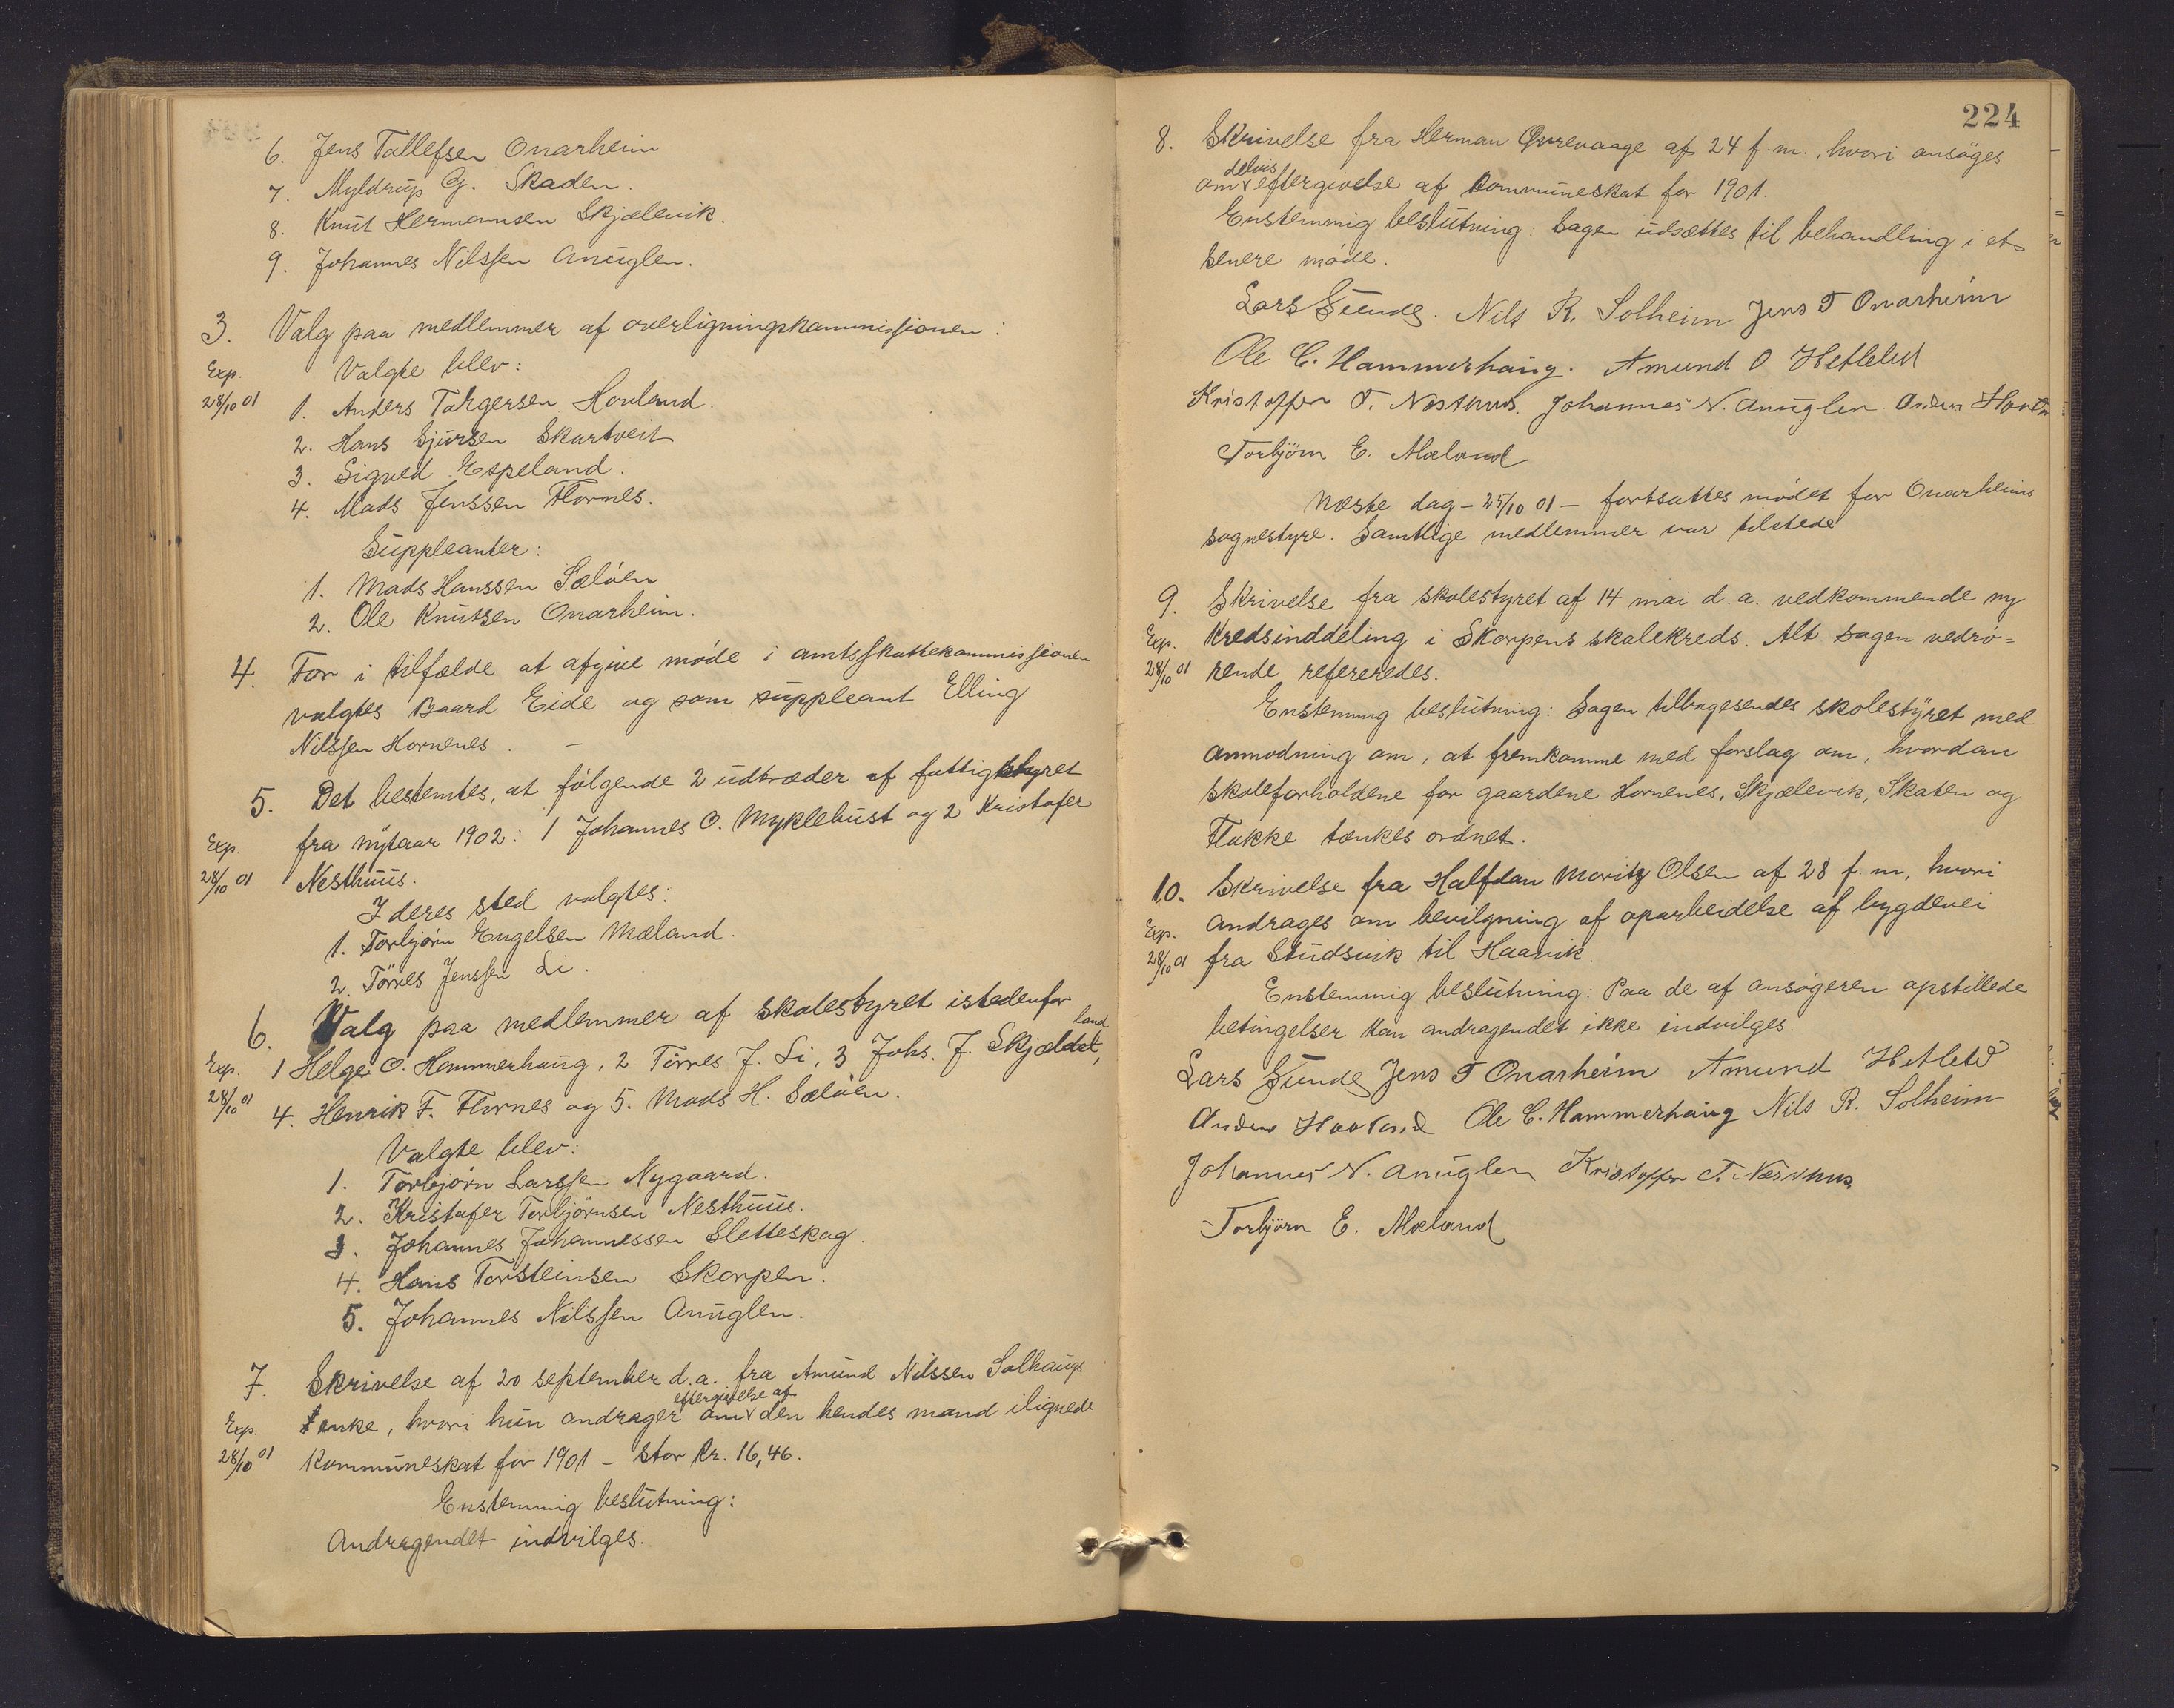 6. Jens Tollefsen Onarheim
7. Myldrup G. Skaden.
8. Knut Hermansen Skjælevik.
9. Johannes Nilssen Anuglen.
3. Valg paa medlemmer af overligningskommissionen:
Exp. Valgte blev:
28/10 01 1. Anders Torgersen Hovland.
2. Hans Sjursen Skartveit
3. Sigved Espeland.
4. Mads Jenssen Flornes.
Suppleanter:
1. Mads Hanssen Sæløen
2. Ole Knutsen Onarheim.
4. For i tilfælde at afgive møde i amtsskattekommissionen
valgtes Baard Eide og som suppleant Elling
Nilssen Hornenes. –
5. Det bestemtes, at følgende 2 udtræder af fattigstyret
Exp. fra nytaar 1902: 1 Johannes O. Myklebust og 2 Kristofer
28/10 01 Nesthuus.
I deres sted valgtes:
1. Torbjørn Engelsen Mæland.
2. Tørres Jenssen Li.
6. Valg paa medlemmer af skolestyret istedenfor
Exp. 1 Helge O. Hammerhaug, 2 Tørres J. Li, 3 Johs. J. Skjældet land,
28/10 01 4. Henrik F. Flornes og 5. Mads H. Sæløen.
Valgte blev:
1. Torbjørn Larssen Nygaard.
2. Kristofer Torbjørnsen Nesthuus.
3. Johannes Johannessen Sletteskog.
4. Hans Torsteinsen Skorpen.
5. Johannes Nilssen Anuglen.
7. Skrivelse af 20 september d.a. fra Amund Nilssen Solhaugs
Exp. enke, hvori hun andrager om eftergivelse af den hendes mand ilignede
28/10 01 Kommuneskat for 1901 – stor kr. 16,46.
Enstemmig beslutning:
Andragendet indvilges.
224
8. Skrivelse fra Herman Qvrevaage af 24 f.m., hvori ansøges
om delvis eftergivelse af kommuneskat for 1901.
Enstemmig beslutning: Sagen udsættes til behandling i et
senere møde.
Lars Sunde. Nils R. Solheim Jens T Onarheim
Ole C. Hammerhaug. Amund O Hetleled
Kristoffer T. Nesthus. Johannes N. Anuglen Anders Hovl
Torbjörn E. Mæland
Næste dag – 25/10 01 – fortsattes mødet for Onarheims
sognestyre. Samtlige medlemmer var tilstede
9. Skrivelse fra skolestyret af 14 mai d.a. vedkommende ny
Exp. Kredsinddeling i Skorpens skolekreds. Alt sagen vedrø-
28/10 01 rende refereredes.
Enstemmig beslutning: Sagen tilbagesendes skolestyret med
anmodning om, at fremkomme med forslag om, hvordan
skoleforholdene for gaardene Hornenes, Skjælevik, Skaten og
Flakke tænkes ordnet.
10. Skrivelse fra Halfdan Moritz Olsen af 28 f.m, hvori
Exp. andrages om bevilgning af oparbeidelse af bygdevei
28/10 01 fra Studsvik til Haavik.
Enstemmig beslutning: Paa de af ansøgeren opstillede
betingelser kan andragendet ikke indvilges.
Lars Sunde Jens T Onarheim Amund Hetleled
Anders Hovland Ole C. Hammerhaug Nils R. Solheim
Johannes N. Anuglen Kristoffer T. Nesthus
Torbjörn E. Mæland